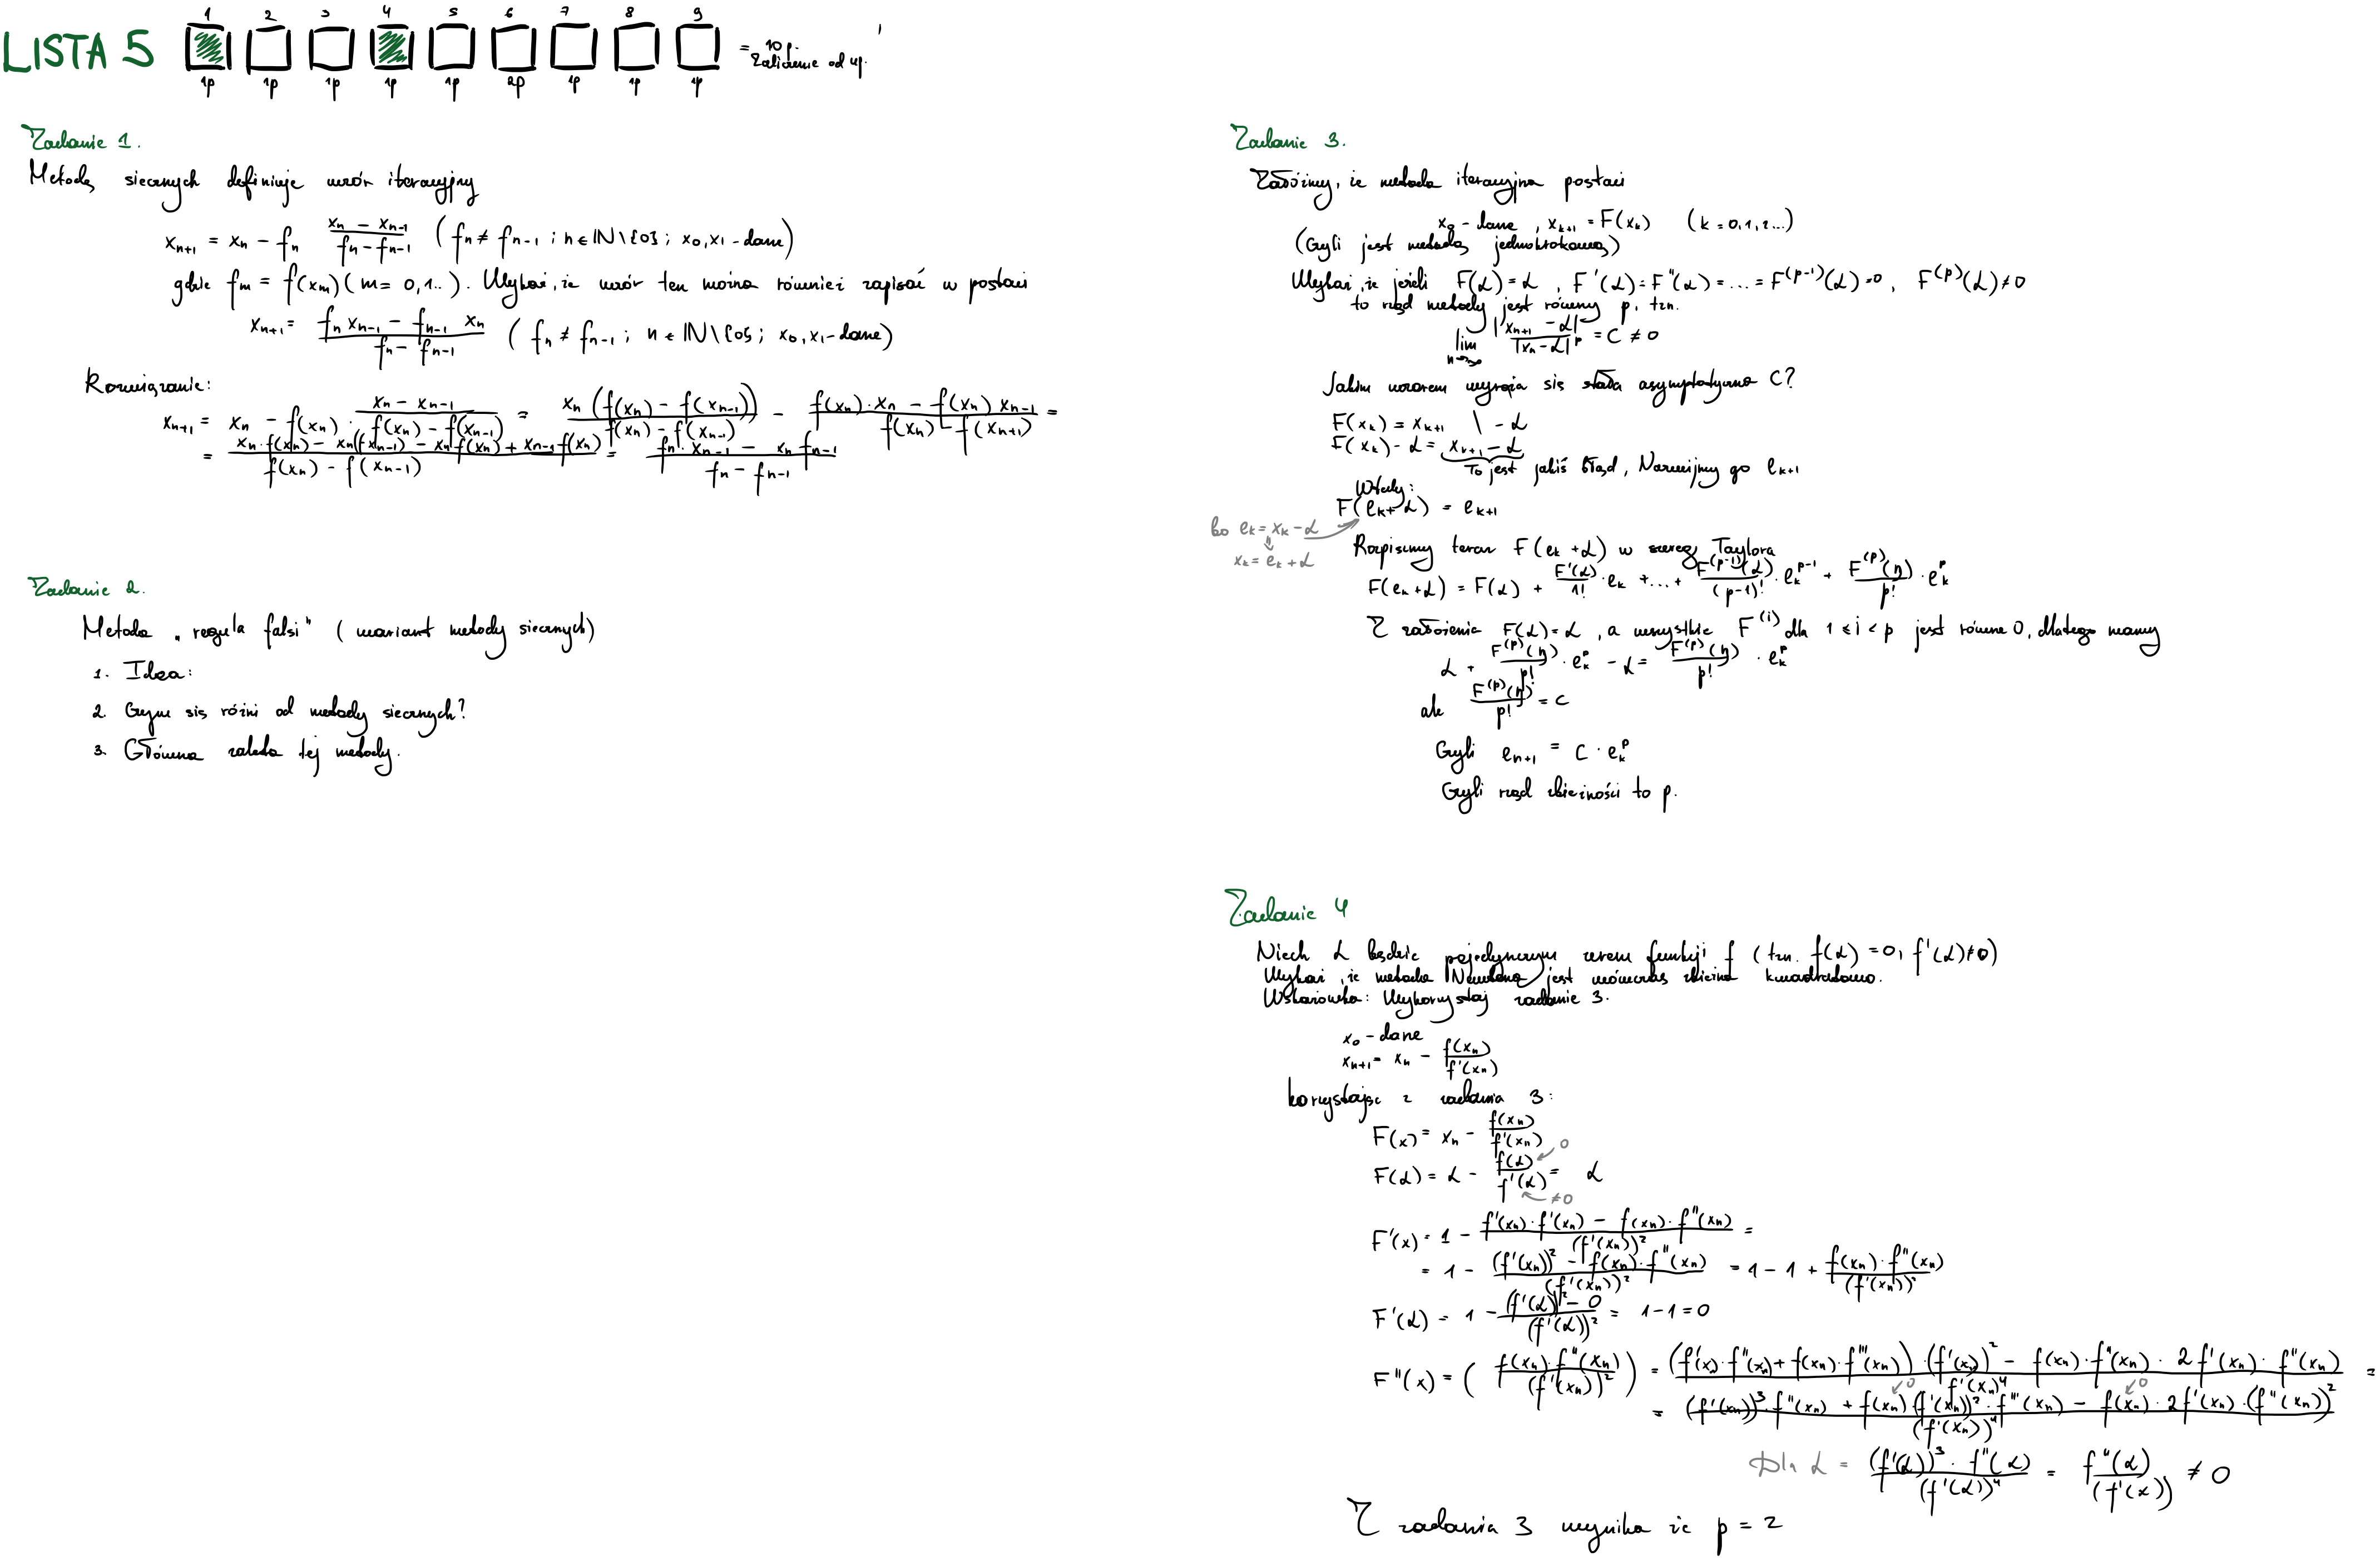 LISTA 5
1 2 3 4 5 6 7 8 9
1p 1p 1p 1p 1p 2p 1p 1p 1p
= 10 p.
Zaliczenie od 4p.
Zadanie 1.
Metodę siecznych definiuje wzór iteracyjny
x_{n+1} = x_n - f_n \frac{x_n - x_{n-1}}{f_n - f_{n-1}} (f_n ≠ f_{n-1} ; n ∈ ℕ\{0} ; x_0, x_1 - dane)
gdzie f_m = f(x_m) (m = 0,1..). Wykaż, że wzór ten można również zapisać w postaci
x_{n+1} = \frac{f_n x_{n-1} - f_{n-1} x_n}{f_n - f_{n-1}} (f_n ≠ f_{n-1} ; n ∈ ℕ\{0} ; x_0, x_1 - dane)
Rozwiązanie:
x_{n+1} = x_n - f(x_n) · \frac{x_n - x_{n-1}}{f(x_n) - f(x_{n-1})} = \frac{x_n (f(x_n) - f(x_{n-1}))}{f(x_n) - f(x_{n-1})} - \frac{f(x_n) · x_n - f(x_n) x_{n-1}}{f(x_n) - f(x_{n+1})} =
= \frac{x_n · f(x_n) - x_n f(x_{n-1}) - x_n f(x_n) + x_{n-1} f(x_n)}{f(x_n) - f(x_{n-1})} = \frac{f_n · x_{n-1} - x_n f_{n-1}}{f_n - f_{n-1}}
Zadanie 2.
Metoda „regula falsi" (wariant metody siecznych)
1. Idea:
2. Czym się różni od metody siecznych?
3. Główna zaleta tej metody.
Zadanie 3.
Załóżmy, że metoda iteracyjna postaci
x_0 - dane, x_{k+1} = F(x_k) (k = 0,1,2...)
(Czyli jest metodą jednokrokową)
Wykaż, że jeżeli F(α) = α, F'(α) = F''(α) = ... = F^{(p-1)}(α) = 0, F^{(p)}(α) ≠ 0
to rząd metody jest równy p, tzn.
\lim_{n→∞} \frac{|x_{n+1} - α|}{|x_n - α|^p} = C ≠ 0
Jakim wzorem wyraża się stała asymptotyczna C?
F(x_k) = x_{k+1} \ - α
F(x_k) - α = x_{k+1} - α
To jest jakiś błąd, Nazwijmy go e_{k+1}
Wtedy:
F(e_k + α) = e_{k+1}
bo e_k = x_k - α
⇓
x_k = e_k + α
Rozpiszmy teraz F(e_k + α) w szereg Taylora
F(e_k + α) = F(α) + \frac{F'(α)}{1!} · e_k + ... + \frac{F^{(p-1)}(α)}{(p-1)!} · e_k^{p-1} + \frac{F^{(p)}(η)}{p!} · e_k^p
Z założenia F(α) = α, a wszystkie F^{(i)} dla 1 ≤ i < p jest równe 0, dlatego mamy
α + \frac{F^{(p)}(η)}{p!} · e_k^p - α = \frac{F^{(p)}(η)}{p!} · e_k^p
ale \frac{F^{(p)}(η)}{p!} = C
Czyli e_{n+1} = C · e_k^p
Czyli rząd zbieżności to p.
Zadanie 4
Niech α będzie pojedynczym zerem funkcji f (tzn. f(α) = 0, f'(α) ≠ 0)
Wykaż, że metoda Newtona jest wówczas zbieżna kwadratowo.
Wskazówka: Wykorzystaj zadanie 3.
x_0 - dane
x_{n+1} = x_n - \frac{f(x_n)}{f'(x_n)}
korzystając z zadania 3:
F(x) = x_n - \frac{f(x_n)}{f'(x_n)}
F(α) = α - \frac{f(α)}{f'(α)} = α
0
≠0
F'(x) = 1 - \frac{f'(x_n) · f'(x_n) - f(x_n) · f''(x_n)}{(f'(x_n))^2} =
= 1 - \frac{(f'(x_n))^2 - f(x_n) · f''(x_n)}{(f'(x_n))^2} = 1 - 1 + \frac{f(x_n) · f''(x_n)}{(f'(x_n))^2}
F'(α) = 1 - \frac{(f'(α))^2 - 0}{(f'(α))^2} = 1 - 1 = 0
F''(x) = ( \frac{f(x_n) · f''(x_n)}{(f'(x_n))^2} ) = \frac{(f'(x) · f''(x_n) + f(x_n) · f'''(x_n)) · (f'(x_n))^2 - f(x_n) · f''(x_n) · 2 f'(x_n) · f''(x_n)}{f'(x_n)^4} =
0 0
= \frac{(f'(x_n))^3 · f''(x_n) + f(x_n) (f'(x_n))^2 · f'''(x_n) - f(x_n) · 2 f'(x_n) · (f''(x_n))^2}{(f'(x_n))^4}
Dla α = \frac{(f'(α))^3 · f''(α)}{(f'(α))^4} = \frac{f''(α)}{(f'(x))} ≠ 0
Z zadania 3 wynika że p = 2